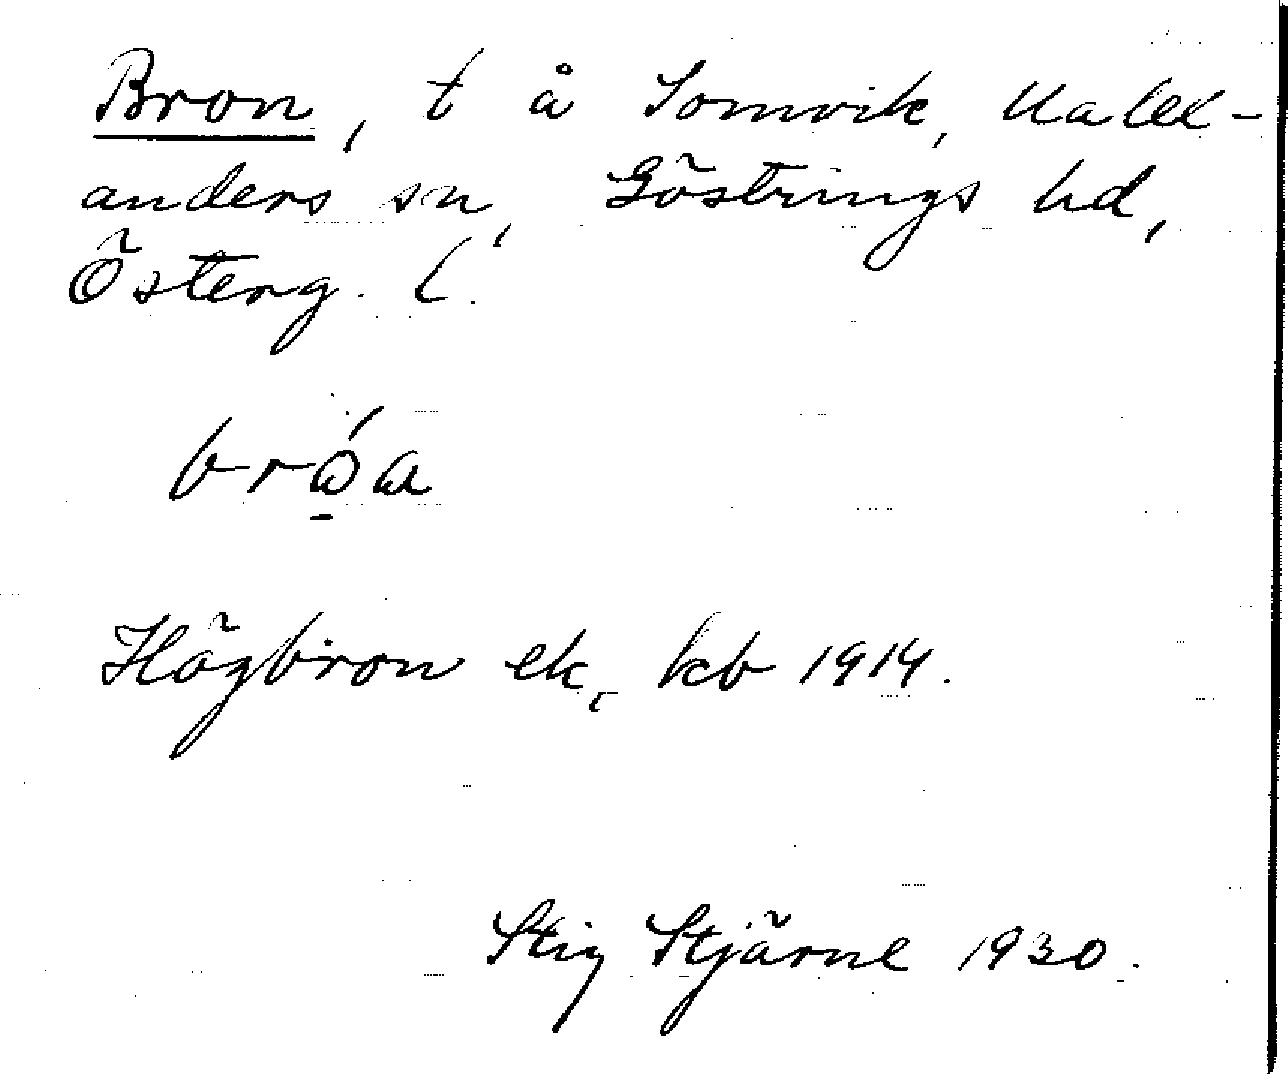 Bron, t å Somvik, Ualex-
anders sn, Göstrings hd,
Österg. l.
bró̠a
Högbron ek, kb 1914.
Stig Stjärne 1930.